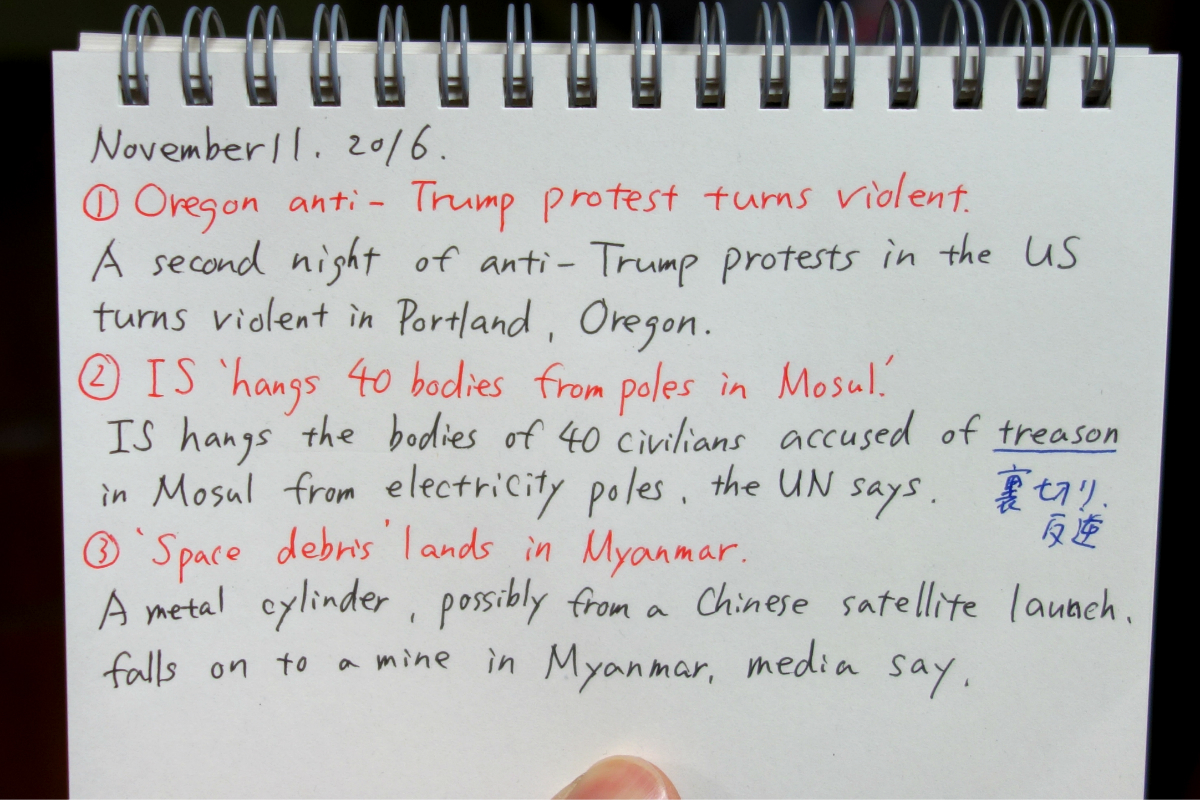 November 11. 2016.
① Oregon anti-Trump protest turns violent.
A second night of anti-Trump protests in the US
turns violent in Portland, Oregon.
② IS 'hangs 40 bodies from poles in Mosul.'
IS hangs the bodies of 40 civilians accused of treason
in Mosul from electricity poles, the UN says.
裏切り.
反逆
③ 'Space debris' lands in Myanmar.
A metal cylinder, possibly from a Chinese satellite launch,
falls on to a mine in Myanmar, media say.